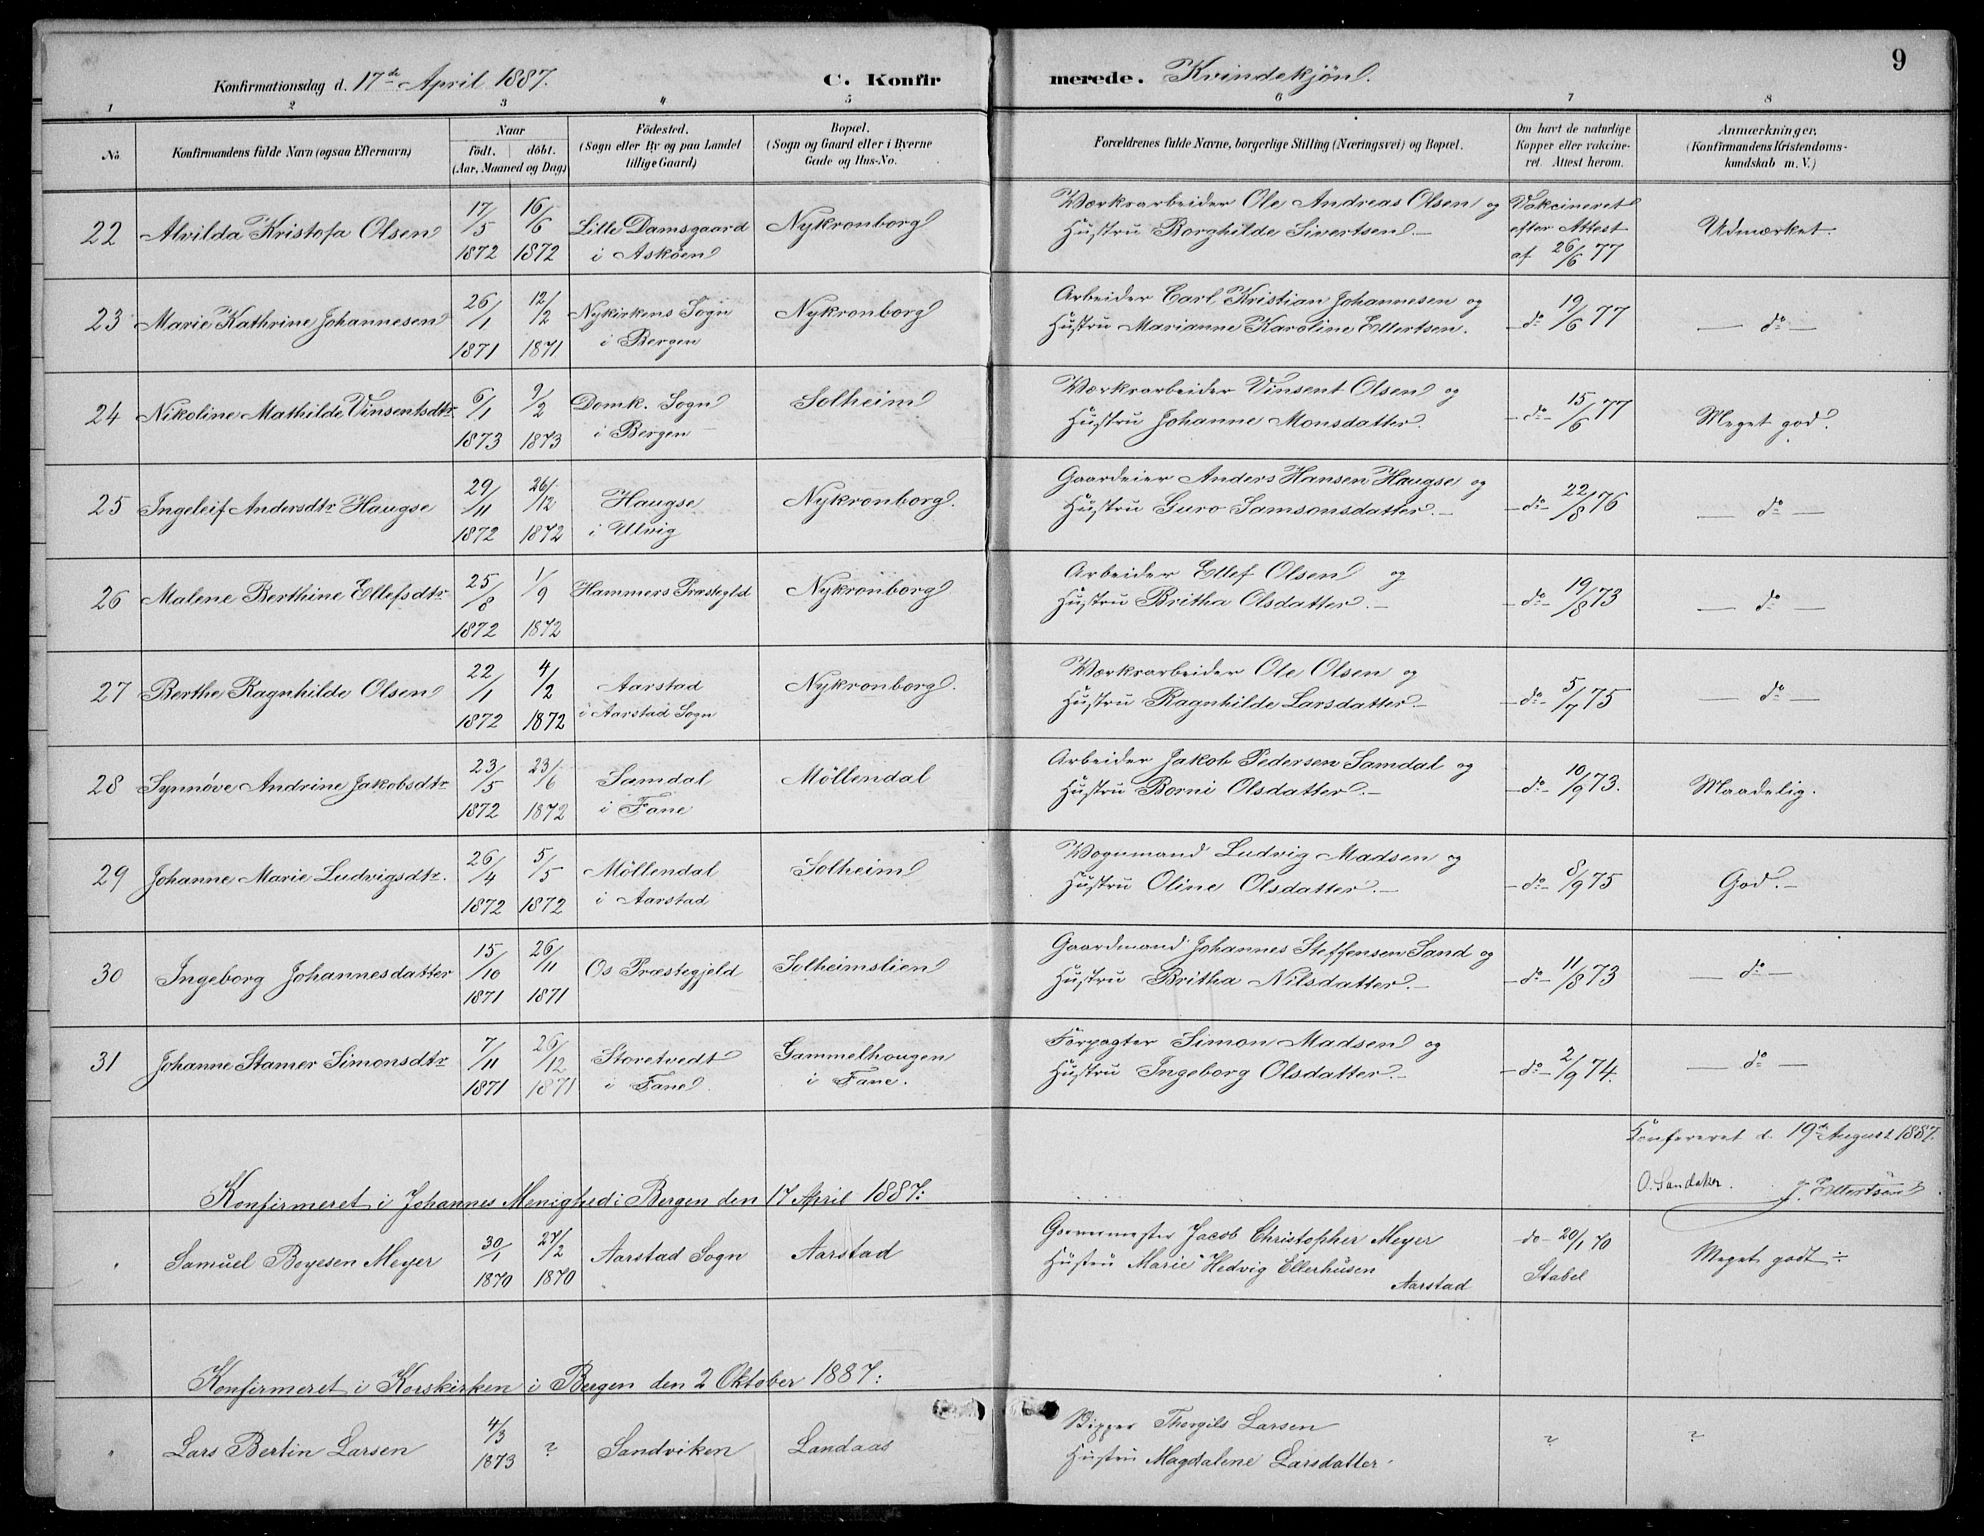 9
Konfirmationsdag d. 17de April 1887. C. Konfirmerede. Kvindekjøn.
1 2 3 4 5 6 7 8
No. Konfirmandens fulde Navn (ogsaa Efternavn) Naar født. døbt. (Aar, Maaned og Dag) Födested. (Sogn eller By og paa Landet tillige Gaard) Bopæl. (Sogn og Gaard eller i Byerne Gade og Hus-No. Forældrenes fulde Navne, borgerlige Stilling (Næringsvei) og Bopæl. Om havt de naturlige Kopper eller vakcineret. Attest herom. Anmærkninger. (Konfirmandens Kristendomskundskab m. V.)
22 Alvilda Kristofa Olsen 17/5 1872 16/6 1872 Lille Damsgaard i Askøen Nykronborg Værksarbeider Ole Andreas Olsen og Hustru Borghilde Sivertsen.— Vakcineret efter Attest af 26/6 77 Udmærket.
23 Marie Kathrine Johannesen 26/1 1871 12/2 1871 Nykirkens Sogn i Bergen Nykronborg Arbeider Carl Kristian Johannesen og Hustru Marianne Karoline Ellertsen. —do— 19/6 77 — do —
24 Nikoline Mathilde Vinsentsdtr 6/1 1873 9/2 1873 Domk. Sogn i Bergen Solheim Værksarbeider Vinsent Olsen og Hustru Johanne Monsdatter. —do— 15/6 77 Meget god.
25 Ingeleif Andersdtr Haugse 29/11 1872 26/12 1872 Haugse i Ulvig Nykronborg. Gaardeier Anders Hansen Haugse og Hustru Guro Samsonsdatter.— —do— 22/8 76 — do —
26 Malene Berthine Ellefsdtr 25/8 1872 1/9 1872 Hammers Præstegld Nykronborg Arbeider Ellef Olsen og Hustru Britha Olsdatter.— —do— 19/8 73 — do —
27 Berthe Ragnhilde Olsen 22/1 1872 4/2 1872 Aarstad i Aarstad Sogn Nykronborg. Værksarbeider Ole Olsen og Hustru Ragnhilde Larsdatter.— —do— 5/7 75 — do —
28 Synnøve Andrine Jakobsdtr 23/5 1872 23/6 1872 Samdal i Fane Möllendal Arbeider Jakob Pedersen Samdal og Hustru Borni Olsdatter.— —do— 10/9 73. Maadelig.
29 Johanne Marie Ludvigsdtr. 26/4 1872 5/5 1872 Möllendal i Aarstad Solheim Vognmand Ludvig Madsen og Hustru Oline Olsdatter.— —do— 8/9 75 God.—
30 Ingeborg Johannesdatter 15/10 1871 26/11 1871 Os Præstegjeld Solheimslien Gaardmand Johannes Steffensen Sand og Hustru Britha Nilsdatter.— —do— 11/8 73 — do —
31 Johanne Stamer Simonsdtr 7/11 1871 26/12 1871 Storetvedt i Fane. Gammelhougen i Fane. Forpagter Simon Madsen og Hustru Ingeborg Olsdatter.— —do— 2/9 74. — do —
Konfereret d. 19de August 1887.
O. Sandaker. J. Ellertsen
Konfirmeret i Johannes Menighed i Bergen den 17 April 1887:
Samuel Boyesen Meyer 30/1 1870 27/2 1870 Aarstad Sogn Aarstad Jacob Christopher Meyer Hustru Marie Hedvig Ellerhusen Aarstad —do— 20/1 70 Stabel Meget godt
Konfirmeret i Korskirken i Bergen den 2 Oktober 1887:
Lars Bertin Larsen 4/3 1873 ? Sandviken Landaas Thorgils Larsen Hustru Magdalene Larsdatter ? ?